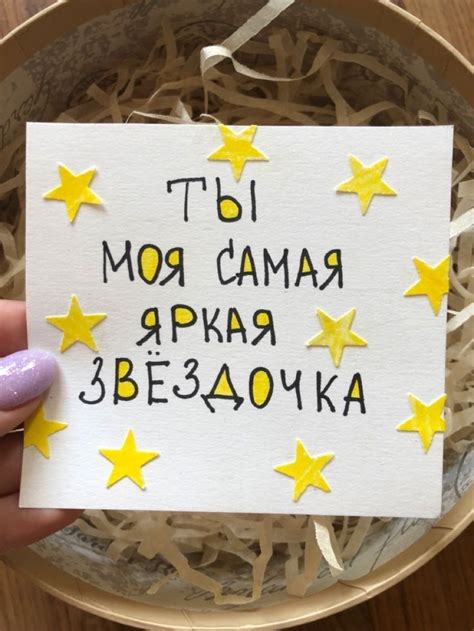 ТЫ
МОЯ САМАЯ
ЯРКАЯ
ЗВЁЗДОЧКА